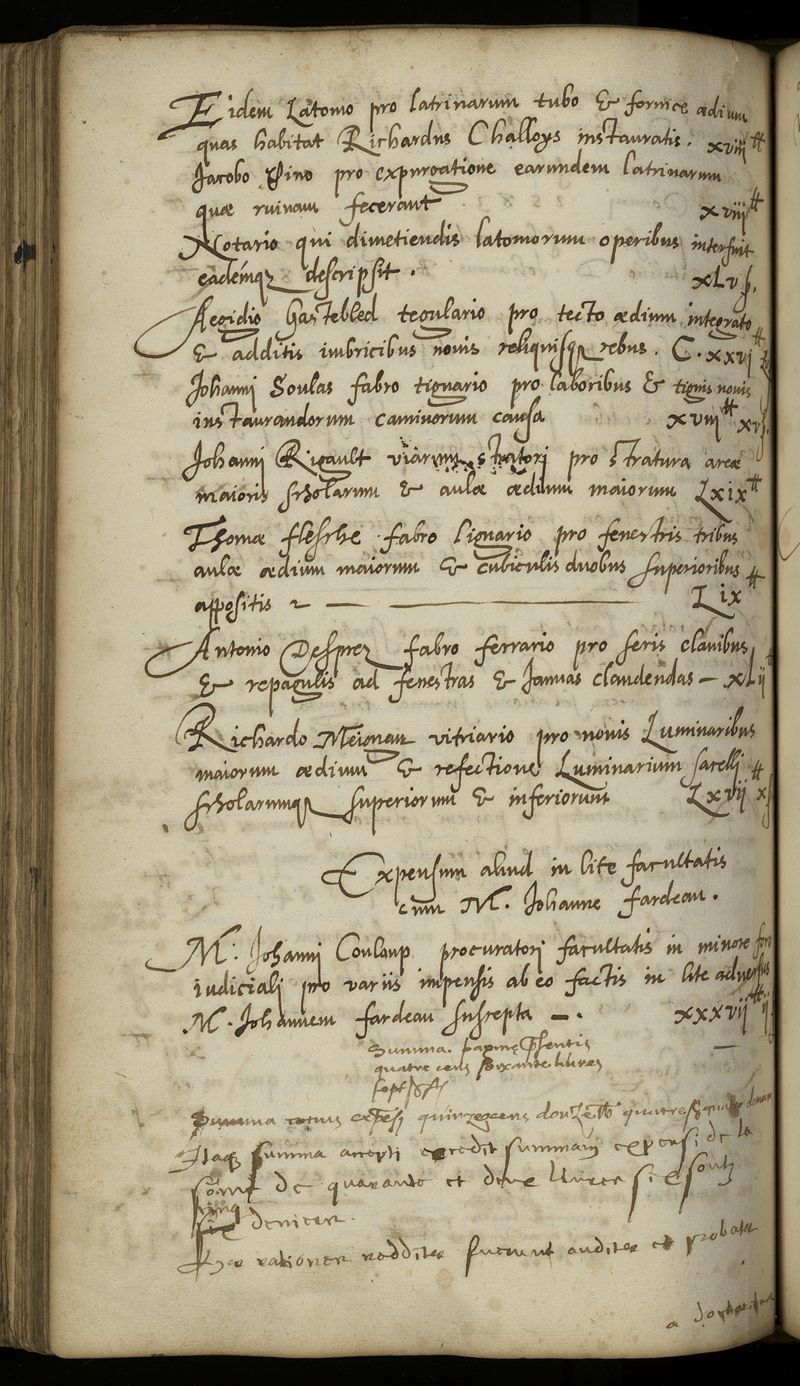 Eidem Latomo pro latrinarum tubo & fornice ædium
quas habitat Richardus Challoys instauratis. xviij ₶
Jacobo Pino pro expurgatione earundem latrinarum
quæ ruinam fecerant xviij ₶
Notario qui dimetiendis latomorum operibus interfuit
eademqꝫ descripsit. xLv ſ.
Aegidio Gastebled tegulario pro tecto ædium integrato
& additis imbricibus novis reliquisqꝫ rebus. C.xxvj ₶
Johanni Soulas fabro tignario pro laboribus & tignis novis
instaurandorum caminorum causa xviij ₶ xv ſ.
Johanni Rigault viarum stratori pro stratura areæ
maioris scholarum & aulæ ædium maiorum Lxix ₶
Thomæ flesche fabro lignario pro fenestris tribus
aulæ ædium maiorum & cubiculis duobus superioribus
appositis Lix ₶
Antonio Desprez fabro ferrario pro seris clavibus
& repagulis ad fenestras & Januas claudendas — xLij ₶
Richardo Meignan vitriario pro novis Luminaribus
maiorum ædium & refectione Luminarium sacelli
scholarumqꝫ superiorum & inferiorum Lxvij ₶ x ſ
Expensum aliud in lite facultatis
cum M. Johanne fardeau.
M. Johanni Couloup procuratori facultatis in minore foro
iudiciali pro variis impensis ab eo factis in lite adversus
M. Johannem fardeau suscepta —. xxxvij ₶ ij
Summa. paginę p̃sentis
quatre cens soixante livres
sept ſ
Summa totius exp̃esi quinzecens douze ₶ quatre ſ
Itaqꝫ summa accepti excedit summam expensi de la
som̃e de quarante et deux livres six soulz
cinq
deniers.
Hæ rationes redditæ fuerunt auditæ et probatæ
a